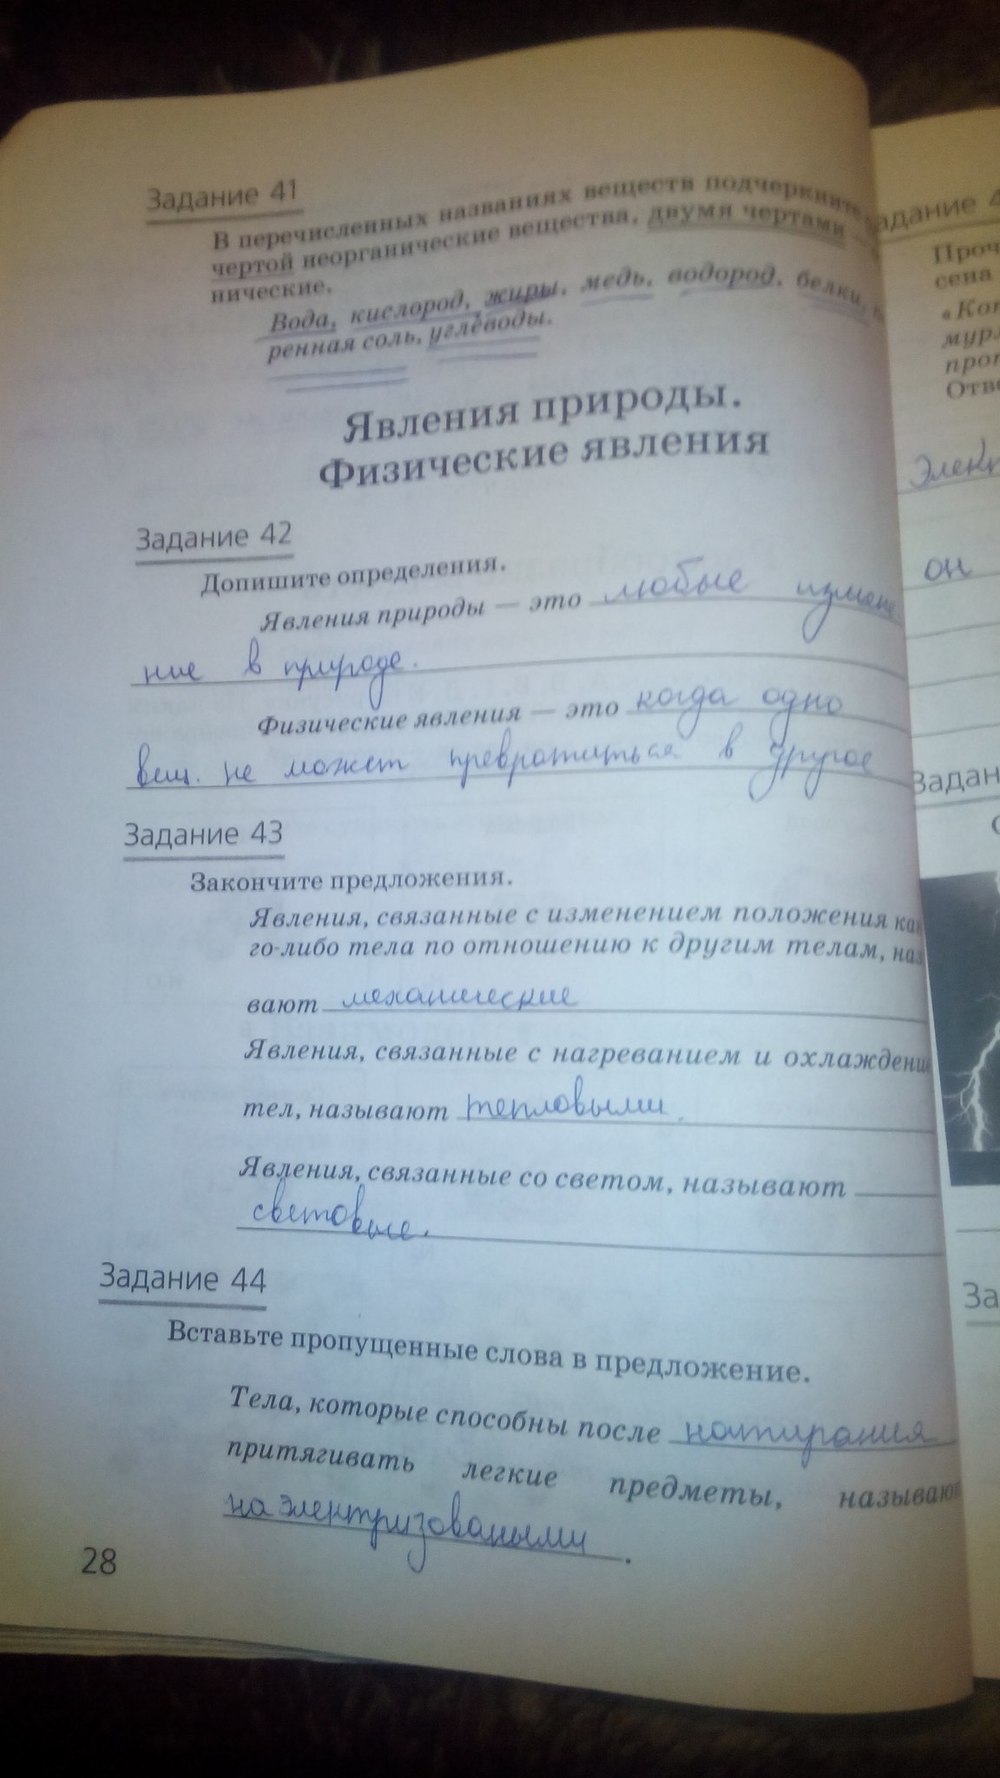 Задание 41
В перечисленных названиях веществ подчеркните
чертой неорганические вещества, двумя чертами —
нические.
Вода, кислород, жиры, медь, водород, белки,
ренная соль, углеводы.
Явления природы.
Физические явления
Задание 42
Допишите определения.
Явления природы — это любые измене
ние в природе.
Физические явления — это когда одно
вещ. не может превратиться в другое
Задание 43
Закончите предложения.
Явления, связанные с изменением положения как
го-либо тела по отношению к другим телам, наз
вают механические
Явления, связанные с нагреванием и охлаждени
тел, называют тепловыми.
Явления, связанные со светом, называют
световые.
Задание 44
Вставьте пропущенные слова в предложение.
Тела, которые способны после натирания
притягивать легкие предметы, называют
наэлектризоваными.
28
адание 4
Проч
сена
«Ког
мурл
прог
Отве
Элект
он
Задан
За